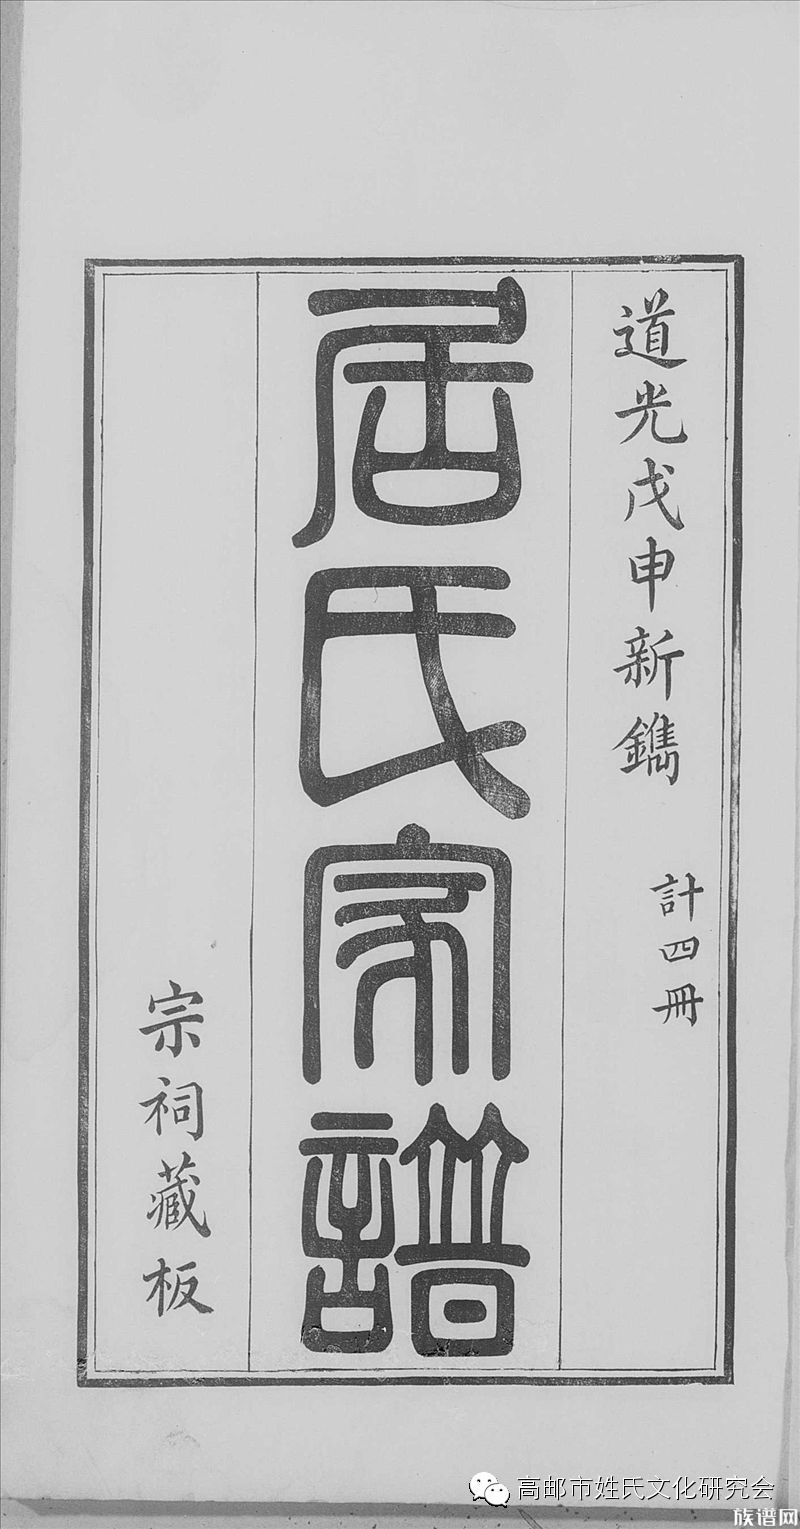 道光戊申新鐫
計四冊
居氏家譜
宗祠藏板
高邮市姓氏文化研究会
族谱网